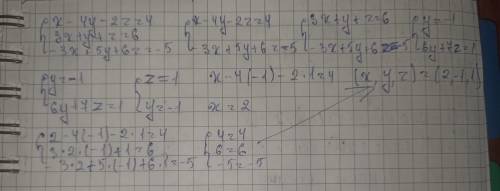 {x-4y-2z=4 {x-4y-2z=4 {3x+y+z=6 {y=-1
{3x+y+z=6 {-3x+5y+6z=-5 {-3x+5y+6z=-5 {6y+7z=1
{-3x+5y+6z=-5
{y=-1 {z=1 x-4(-1)-2·1=4 (x,y,z)=(2,-1,1)
{6y+7z=1 {y=-1 x=2
{2-4(-1)-2·1=4 {4=4
{3·2·(-1)+1=6 {6=6
{-3·2+5·(-1)+6·1=-5 {-5=-5